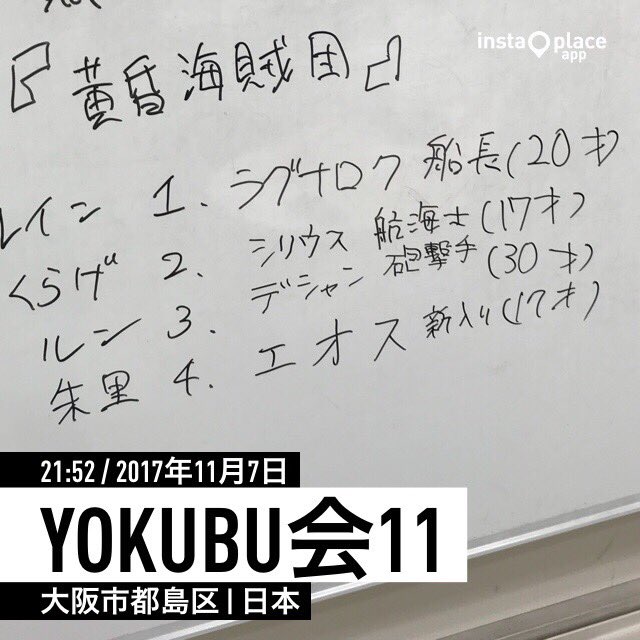 insta place
app
『黄昏海賊団』
レイン 1. ラグナロク 船長(20才)
くらげ 2. シリウス 航海士(17才)
ルン 3. デシャン 砲撃手(30才)
朱里 4. エオス 新入り(17才)
21:52 / 2017年11月7日
YOKUBU会11
大阪市都島区 | 日本